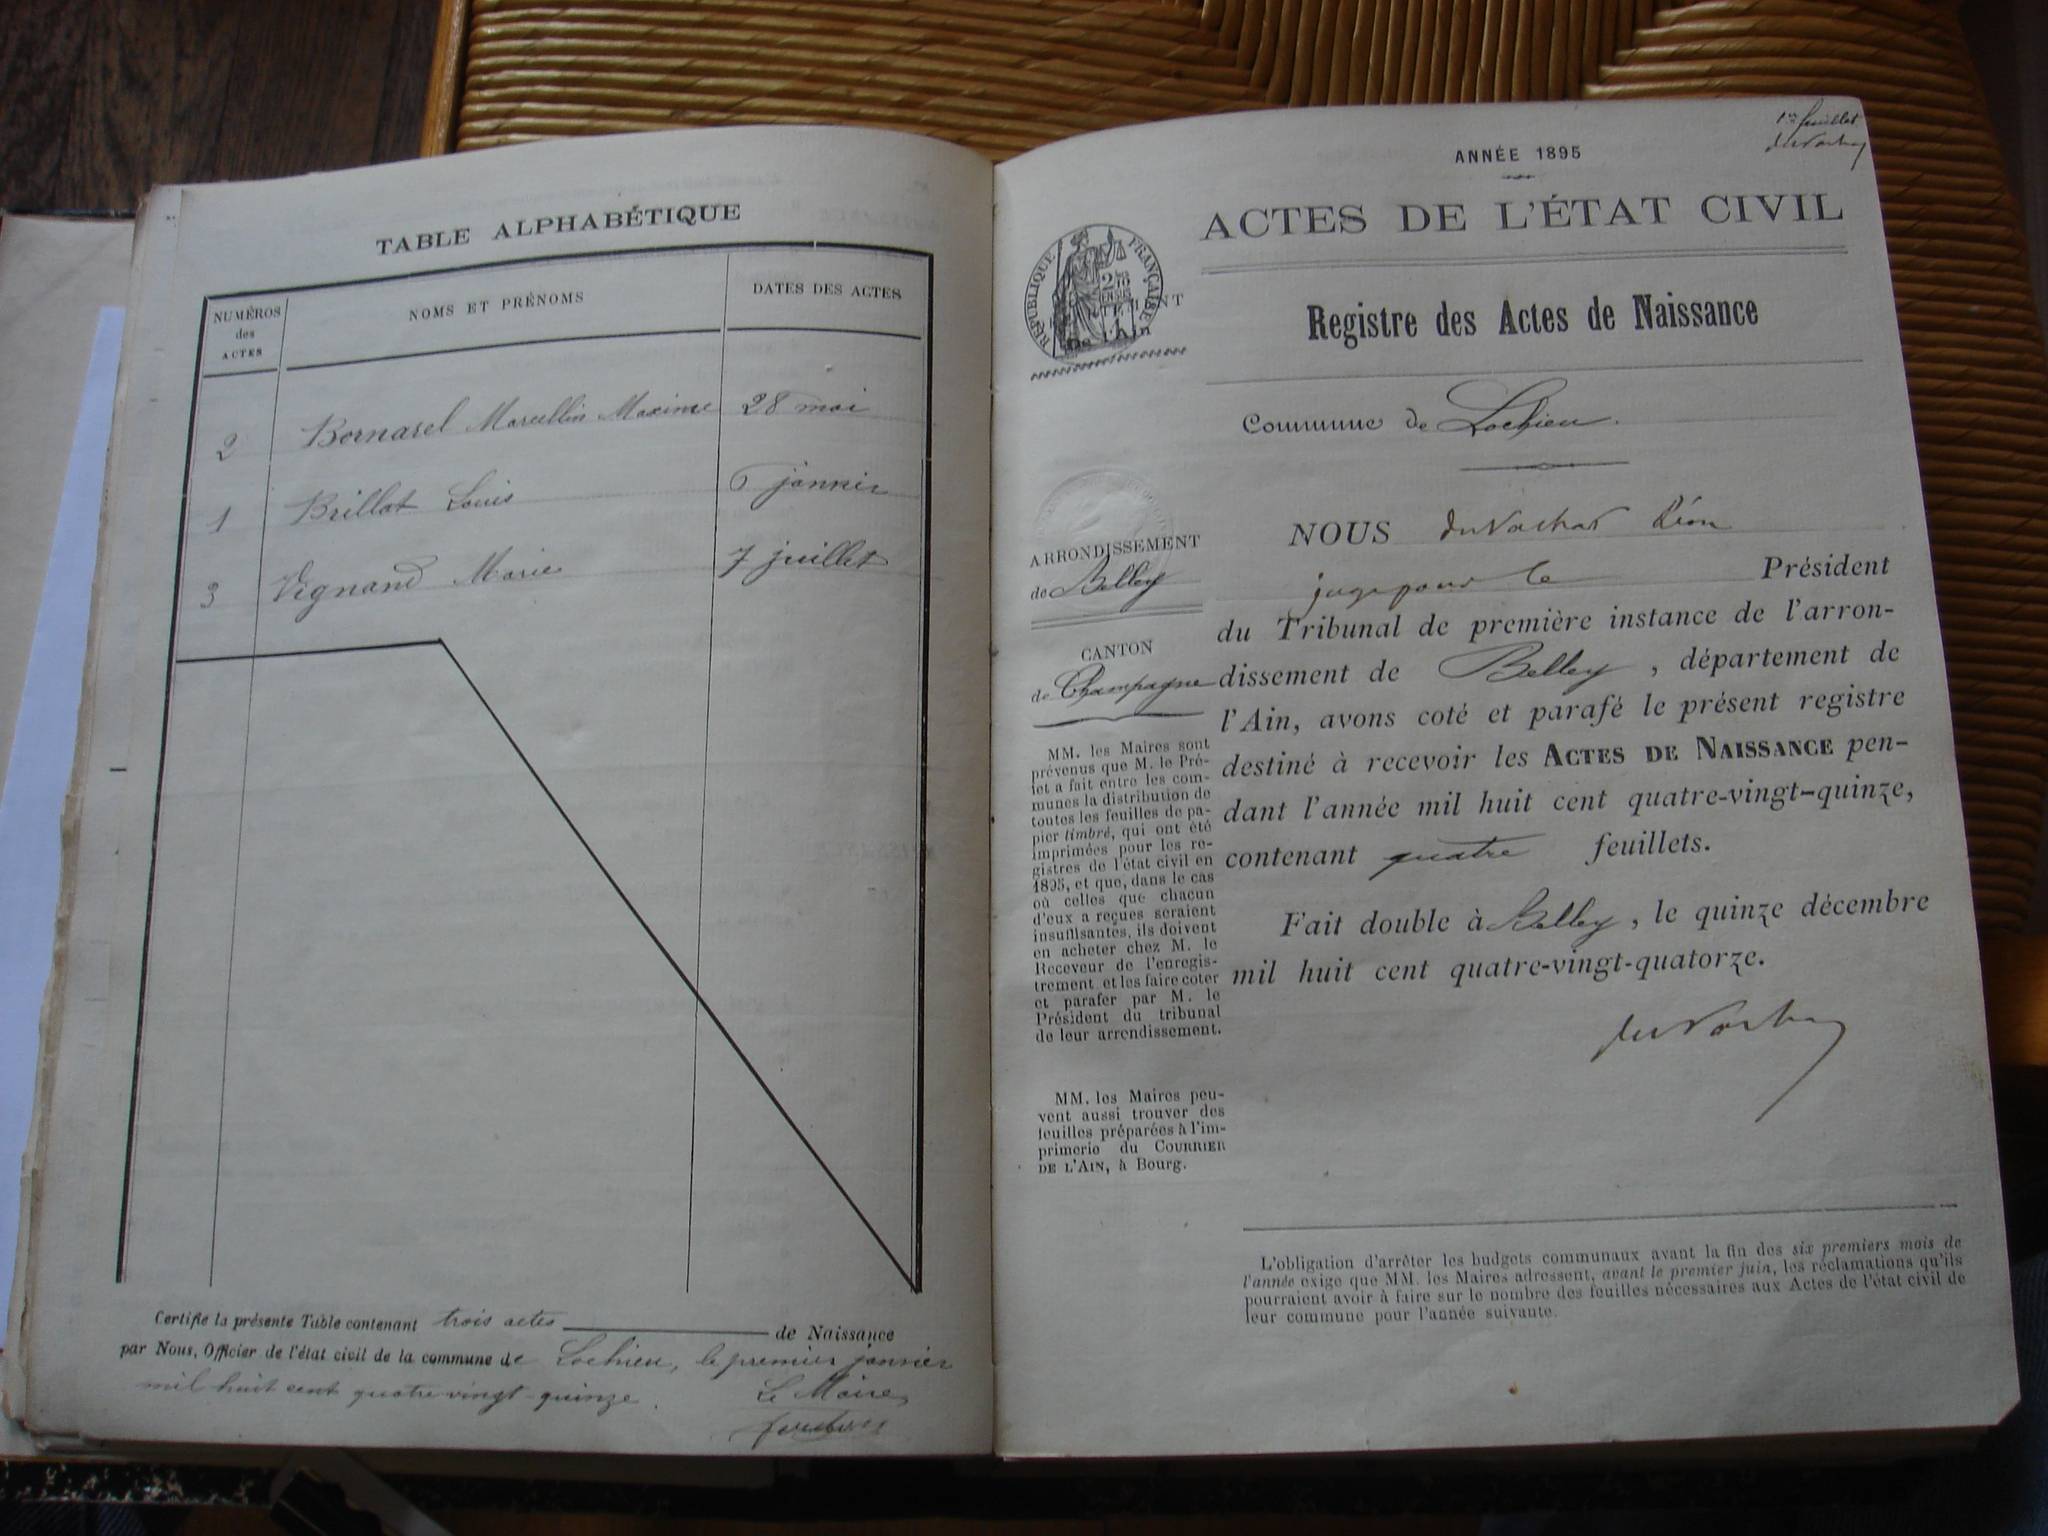 TABLE ALPHABÉTIQUE
NUMÉROS
des
ACTES
NOMS ET PRÉNOMS
DATES DES ACTES
2 Bornarel Marcellin Maxime 28 mai
1 Brillat Louis 6 janvier
3 Vignand Marie 7 juillet
Certifie la présente Table contenant trois actes de Naissance
par Nous, Officier de l'état civil de la commune de Lochieu, le premier janvier
mil huit cent quatre vingt-quinze.
Le Maire
1er feuillet
ANNÉE 1895
ACTES DE L'ÉTAT CIVIL
RÉPUBLIQUE FRANÇAISE
Registre des Actes de Naissance
Commune de Lochieu.
ARRONDISSEMENT
de Belley
CANTON
de Champagne
MM. les Maires sont
prévenus que M. le Pré-
fet a fait entre les com-
munes la distribution de
toutes les feuilles de pa-
pier timbré, qui ont été
imprimées pour les re-
gistres de l'état civil en
1895, et que, dans le cas
où celles que chacun
d'eux a reçues seraient
insuffisantes, ils doivent
en acheter chez M. le
Receveur de l'enregis-
trement et les faire coter
et parafer par M. le
Président du tribunal
de leur arrondissement.
MM. les Maires peu-
vent aussi trouver des
feuilles préparées à l'im-
primerie du COURRIER
DE L'AIN, à Bourg.
NOUS Léon
juge pour le Président
du Tribunal de première instance de l'arron-
dissement de Belley, département de
l'Ain, avons coté et parafé le présent registre
destiné à recevoir les ACTES DE NAISSANCE pen-
dant l'année mil huit cent quatre-vingt-quinze,
contenant quatre feuillets.
Fait double à Belley, le quinze décembre
mil huit cent quatre-vingt-quatorze.
L'obligation d'arrêter les budgets communaux avant la fin des six premiers mois de
l'année exige que MM. les Maires adressent, avant le premier juin, les réclamations qu'ils
pourraient avoir à faire sur le nombre des feuilles nécessaires aux Actes de l'état civil de
leur commune pour l'année suivante.